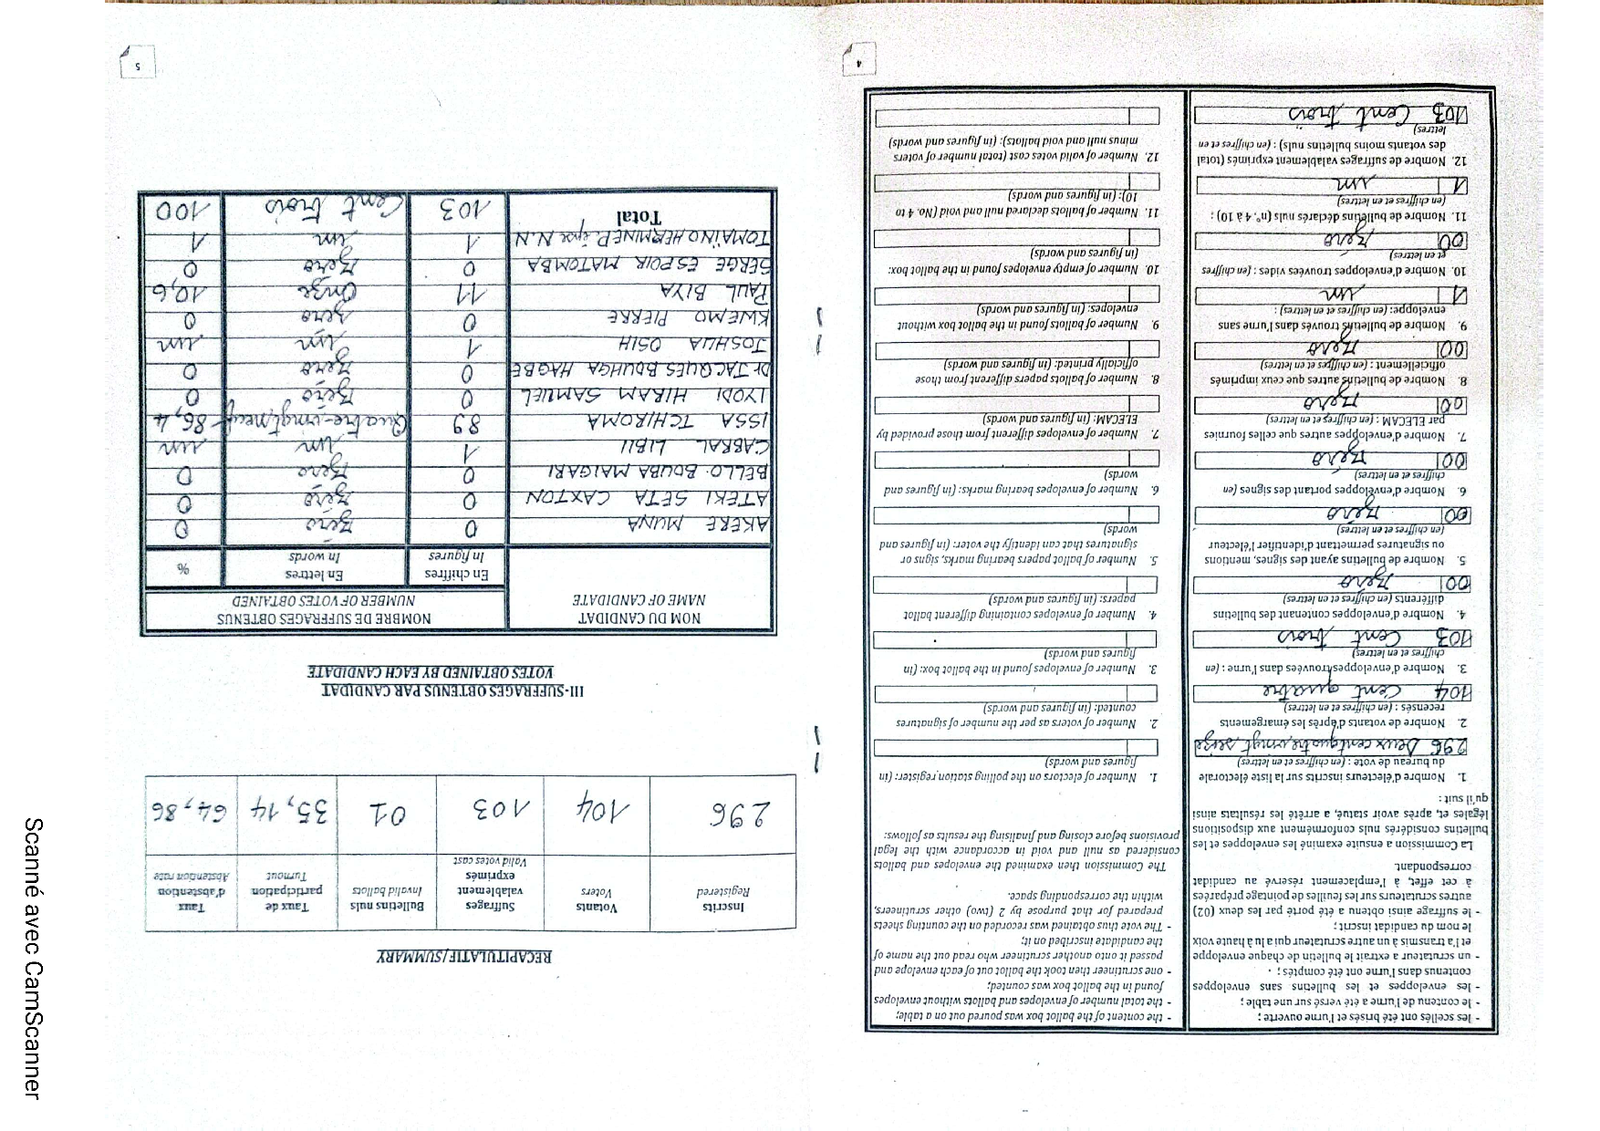 4
- les scellés ont été brisés et l'urne ouverte ;
- le contenu de l'urne a été versé sur une table ;
- les enveloppes et les bulletins sans enveloppes
contenus dans l'urne ont été comptés ;
- un scrutateur a extrait le bulletin de chaque enveloppe
et l'a transmis à un autre scrutateur qui a lu à haute voix
le nom du candidat inscrit ;
- le suffrage ainsi obtenu a été porté par les deux (02)
autres scrutateurs sur les feuilles de pointage préparées
à cet effet, à l'emplacement réservé au candidat
correspondant.
La Commission a ensuite examiné les enveloppes et les
bulletins considérés nuls conformément aux dispositions
légales et, après avoir statué, a arrêté les résultats ainsi
qu'il suit :
1. Nombre d'électeurs inscrits sur la liste électorale
du bureau de vote : (en chiffres et en lettres)
296 Deux cent quatre vingt seize
2. Nombre de votants d'après les émargements
recensés : (en chiffres et en lettres)
104 Cent quatre
3. Nombre d'enveloppes trouvées dans l'urne : (en
chiffres et en lettres)
103 Cent trois
4. Nombre d'enveloppes contenant des bulletins
différents (en chiffres et en lettres)
00 zéro
5. Nombre de bulletins ayant des signes, mentions
ou signatures permettant d'identifier l'électeur
(en chiffres et en lettres)
00 zéro
6. Nombre d'enveloppes portant des signes (en
chiffres et en lettres)
00 zéro
7. Nombre d'enveloppes autres que celles fournies
par ELECAM : (en chiffres et en lettres)
00 zéro
8. Nombre de bulletins autres que ceux imprimés
officiellement : (en chiffres et en lettres)
00 zéro
9. Nombre de bulletins trouvés dans l'urne sans
enveloppe: (en chiffres et en lettres) :
1 un
10. Nombre d'enveloppes trouvées vides : (en chiffres
et en lettres)
00 zéro
11. Nombre de bulletins déclarés nuls (n° 4 à 10) :
(en chiffres et en lettres)
1 un
12. Nombre de suffrages valablement exprimés (total
des votants moins bulletins nuls) : (en chiffres et en
lettres)
103 Cent trois
- the content of the ballot box was poured out on a table;
- the total number of envelopes and ballots without envelopes
found in the ballot box was counted;
- one scrutineer then took the ballot out of each envelope and
passed it onto another scrutineer who read out the name of
the candidate inscribed on it;
- The vote thus obtained was recorded on the counting sheets
prepared for that purpose by 2 (two) other scrutineers,
within the corresponding space.
The Commission then examined the envelopes and ballots
considered as null and void in accordance with the legal
provisions before closing and finalising the results as follows:
1. Number of electors on the polling station register: (in
figures and words)
2. Number of voters as per the number of signatures
counted: (in figures and words)
3. Number of envelopes found in the ballot box: (in
figures and words)
4. Number of envelopes containing different ballot
papers: (in figures and words)
5. Number of ballot papers bearing marks, signs or
signatures that can identify the voter: (in figures and
words)
6. Number of envelopes bearing marks: (in figures and
words)
7. Number of envelopes different from those provided by
ELECAM: (in figures and words)
8. Number of ballots papers different from those
officially printed: (in figures and words)
9. Number of ballots found in the ballot box without
envelopes: (in figures and words)
10. Number of empty envelopes found in the ballot box:
(in figures and words)
11. Number of ballots declared null and void (No. 4 to
10): (in figures and words)
12. Number of valid votes cast (total number of voters
minus null and void ballots): (in figures and words)
5
RECAPITULATIF/SUMMARY
Inscrits Registered | Votants Voters | Suffrages valablement exprimés Valid votes cast | Bulletins nuls Invalid ballots | Taux de participation Turnout | Taux d'abstention Abstention rate
296 | 104 | 103 | 01 | 35,14 | 64,86
III-SUFFRAGES OBTENUS PAR CANDIDAT
VOTES OBTAINED BY EACH CANDIDATE
NOM DU CANDIDAT | NOMBRE DE SUFFRAGES OBTENUS
NAME OF CANDIDATE | NUMBER OF VOTES OBTAINED
En chiffres | En lettres | %
In figures | In words
AKERE MUNA | 0 | zéro | 0
ATEKI SETA CAXTON | 0 | zéro | 0
BELLO BOUBA MAIGARI | 0 | zéro | 0
CABRAL LIBII | 1 | un | un
ISSA TCHIROMA | 89 | Quatre-vingt neuf | 86,4
LYODI HIRAM SAMUEL | 0 | zéro | 0
Dr JACQUES BOUHGA HAGBE | 0 | zéro | 0
JOSHUA OSIH | 1 | un | un
KWEMO PIERRE | 0 | zéro | 0
PAUL BIYA | 11 | Onze | 10,6
SERGE ESPOIR MATOMBA | 0 | zéro | 0
TOMAÏNO HERMINE P. épse N.N | 1 | un | 1
Total | 103 | Cent trois | 100
Scanné avec CamScanner